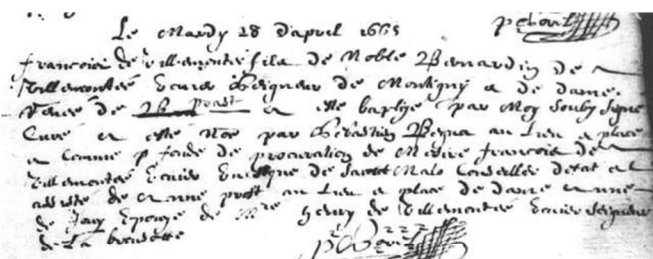 Le Mardy 28 d'apvril 1665
francois de Villemontée fils de Noble Bernardin de
Villemontée Ecuier Seigneur de Montigny et de dame
de prast a esté baptizé par Moy Soubz signé
Curé et esté Noé par Sébastien au Lieu et place
et comme p fondé de procuration de Messire francois de
Villemontée Ecuier Evesque de Sainct Malo Conseiller d'estat et
assisté de anne prost au Lieu et place de dame anne
de Epouze de Mre henry de Villemontée Ecuier Seigneur
de La